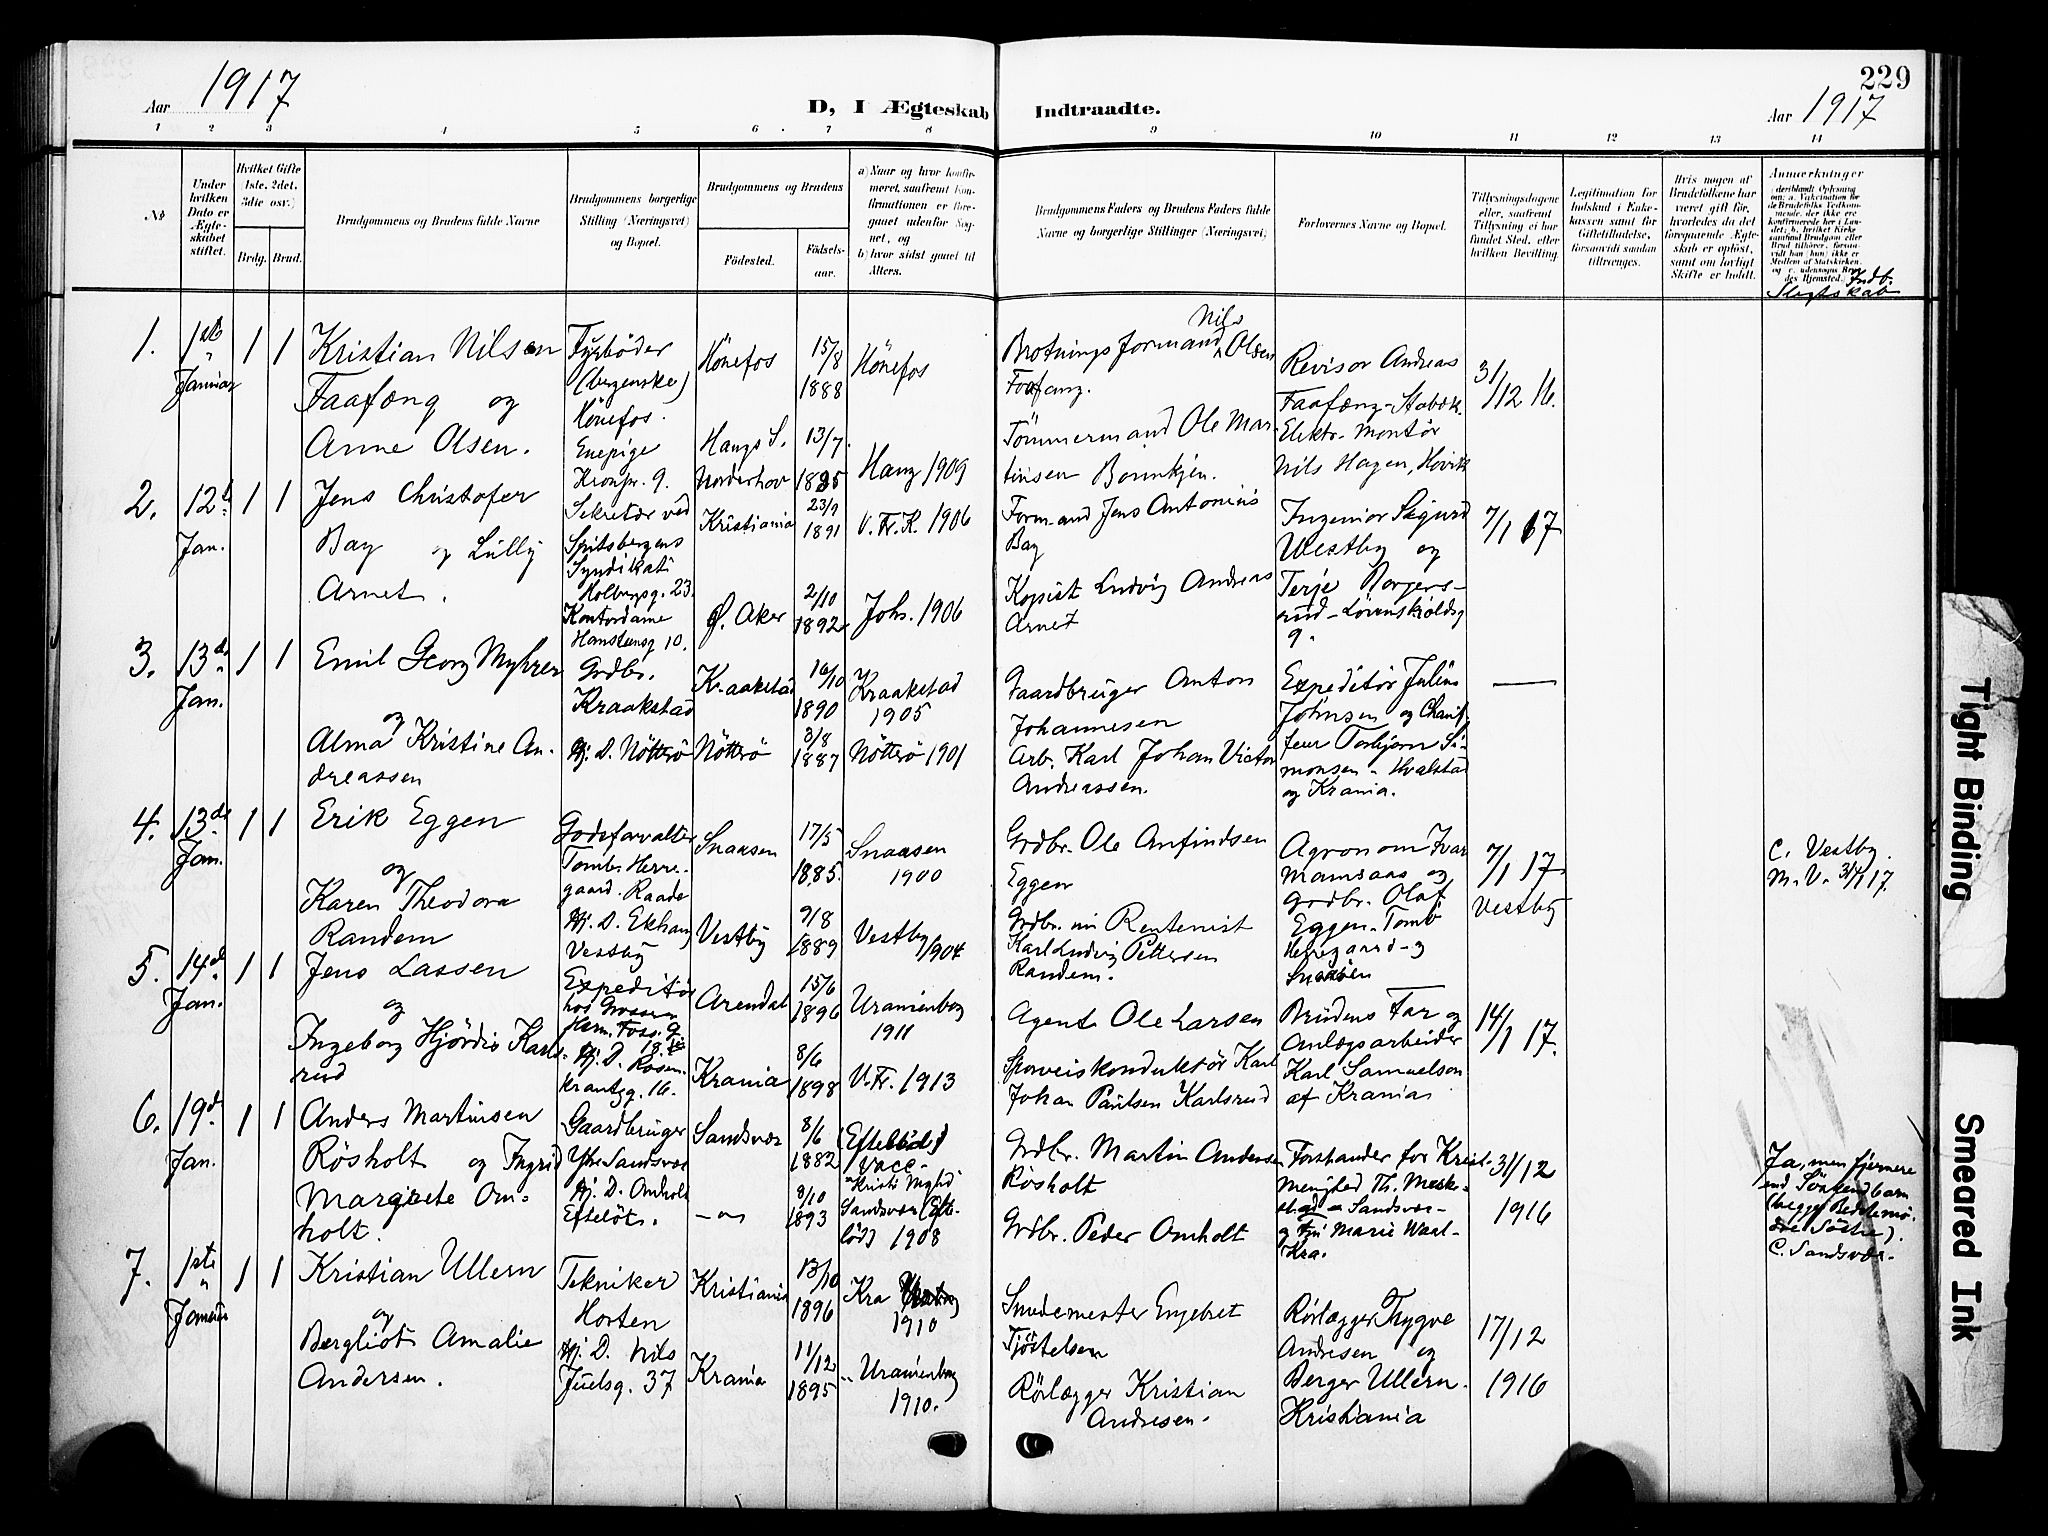 229
Aar 1917
D, I Ægteskab Indtraadte.
Aar 1917
1 2 3 4 5 6 7 8 9 10 11 12 13 14
No
Under hvilken Dato er Ægteskabet stiftet.
Hvilket Gifte 1ste, 2det, 3die osv.)
Brdg. Brud.
Brudgommens og Brudens fulde Navne
Brudgommens borgerlige Stilling (Næringsvei) og Bopæl.
Brudgommens og Brudens
Födested.
Födselsaar.
a) Naar og hvor konfirmeret, saafremt Konfirmationen er foregaaet udenfor Sognet, og
b) hvor sidst gaaet til Alters.
Brudgommens Faders og Brudens Faders fulde Navne og borgerlige Stillinger (Næringsvei)
Forlovernes Navne og Bopæl.
Tillysningsdagene eller, saafremt Tillysning ei har fundet Sted, efter hvilken Bevilling.
Legitimation for Indskud i Enkekassen samt for Giftetilladelse, forsaavidt saadan tiltrænges.
Hvis nogen af Brudefolkene har været gift för, hvorledes da det foregaaende Ægteskab er oplöst, samt om lovligt Skifte er holdt.
Anmærkninger
Indb. Slegtskab
1.
1ste
"
Januar
1 1
Kristian Nilsen
Faafæng og
Anne Olsen.
Fyrböder
(bergenske)
Hönefos.
Enepige
Kronpr. 9.
Hönefos
15/8
1888
Hönefos
Haugs S.
Norderhov
13/7.
Haug 1909
Brotnings formand Nils Olsen
Faafæng.
Tömmermand Ole Mar-
tinsen
Revisor Andreas
Faafæng-Stabæk.
Elektr. montör
Nils Hagen, Hövik
31/12 16.
2.
12t
Jan.
1 1
Jens Christofer
Bay og Lully
Arnet.
Sekretær ved
Spitsbergens
Syndikat
Holbergsg. 23.
Kontordame
Hansteensg 10.
Kristiania
1891
V. Fr. K. 1906
Ö. Aker
2/10
1892
Joh. 1906
Formand Jens Antonius
Bay
Kopist Ludvig Andreas
Arnet
Ingeniör Sigurd
Westby og
Terje Borgers-
rud - Lövenskioldsg
9.
7/1 17
3.
13de
Jan.
1 1
Emil Georg Myhrer
og
Alma Kristine An-
dreassen
Grdbr.
Kraakstad
Hj. D. Nötterö
Kraakstad
16/10
1890
Kraakstad
1905
Nötterö
3/8
1887
Nötterö 1901
Gaardbruger Anton
Johannesen
Arb. Karl Johan Victor
Andreassen.
Expeditör Julius
Johnsen og Chauf-
feur Torbjörn Si-
monsen - Hvalstad
og Krania.
—
4.
13de
Jan.
1 1
Erik Eggen
og
Karen Theodora
Randem
Godsforvalter
Tomb Herre-
gaard. Raade
Hj. D. Ekhaug
Vestby
Snaasen
17/5
1885.
Snaasen
1900
Vestby
9/8
1889
Vestby 1904
Grdbr. Ole Anfindsen
Eggen
Grdbr. nu Rentenist
Karl Ludvig Pettersen
Randem.
Agronom Ivar
Mamsaas og
Grdbr. Olaf
Eggen. Tomb
Herregaard - og
Snaasen
7/1 17
Vestby
C. Vestby.
M. V. 31/1 17.
5.
14d
Jan.
1 1
Jens Lassen
og
Ingeborg Hjördis Karls-
rud
Expeditör
hos Grosser
Herm. Foss. g
Hj. D. Rosen-
krantzg. 16.
Arendal
15/6
1896
Uranienborg
1911
Krania
8/6
1898
V. Fr. 1913
Agent Ole Larsen
Sporveiskonduktör Karl
Johan Paulsen Karlsrud
Brudens Far og
Anlægsarbeider
Karl Samuelson
af Krania
14/1 17.
6.
19d.
Jan.
1 1
Anders Martinsen
Rösholt og Ingrid
Margrete Om-
holt.
Gaardbruger
Ytre Sandsvær
Hj. D. Omholt
Eftelöt.
Sandsvær
8/6
1882
(Eftelöd)
vacc.
— " —
8/10
1893
Sandsvær (Efte-
löd) 1908
Grdbr. Martin Andersen
Rösholt
Grdbr. Peder Omholt
Forstander for Krist.
Menighed Th. Meske-
stad - Sandsvær -
og Frü Marie Waal-
Kra.
31/12
1916
Ja, men fjernere
end Söskendbarn
(begges Bedstemö-
dre Söstre).
C. Sandsvær.
7.
1ste
"
Januar
1 1
Kristian Ullern
og
Bergliot Amalie
Andersen.
Tekniker
Horten
Hj. D. Nils
Juelsg. 37
Kristiania
13/10
1896
Kra
1910
Krania
11/12
1895
" Uranienborg
1910.
Smedemester Engebret
Tjöstelsen
Rörlægger Kristian
Andresen.
Rörlægger Thygve
Andresen og
Berger Ullern.
Kristiania
17/12
1916
Tight Binding
Smeared Ink